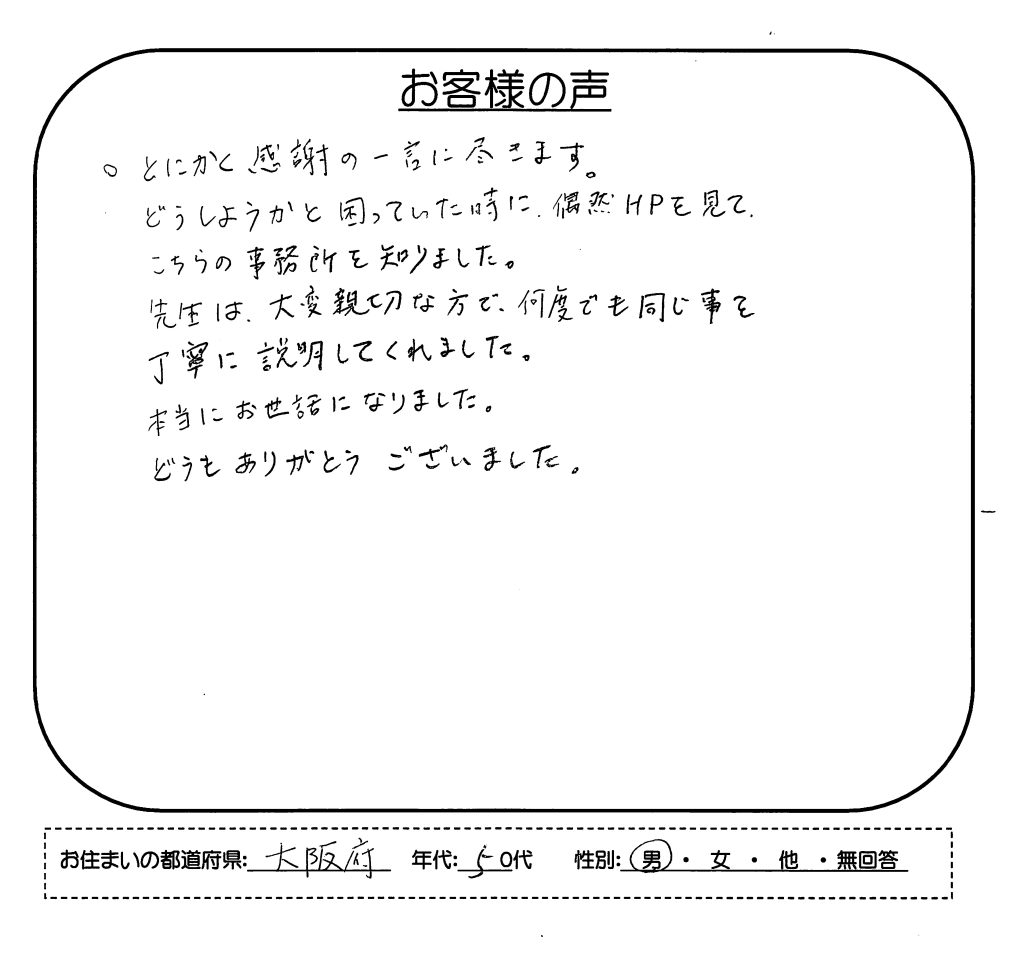 お客様の声
○とにかく感謝の一言に尽きます。
どうしようかと困っていた時に、偶然HPを見て、
こちらの事務所を知りました。
先生は、大変親切な方で、何度でも同じ事を
丁寧に説明してくれました。
本当にお世話になりました。
どうもありがとうございました。
お住まいの都道府県: 大阪府 年代: 50代 性別: 男・女・他・無回答